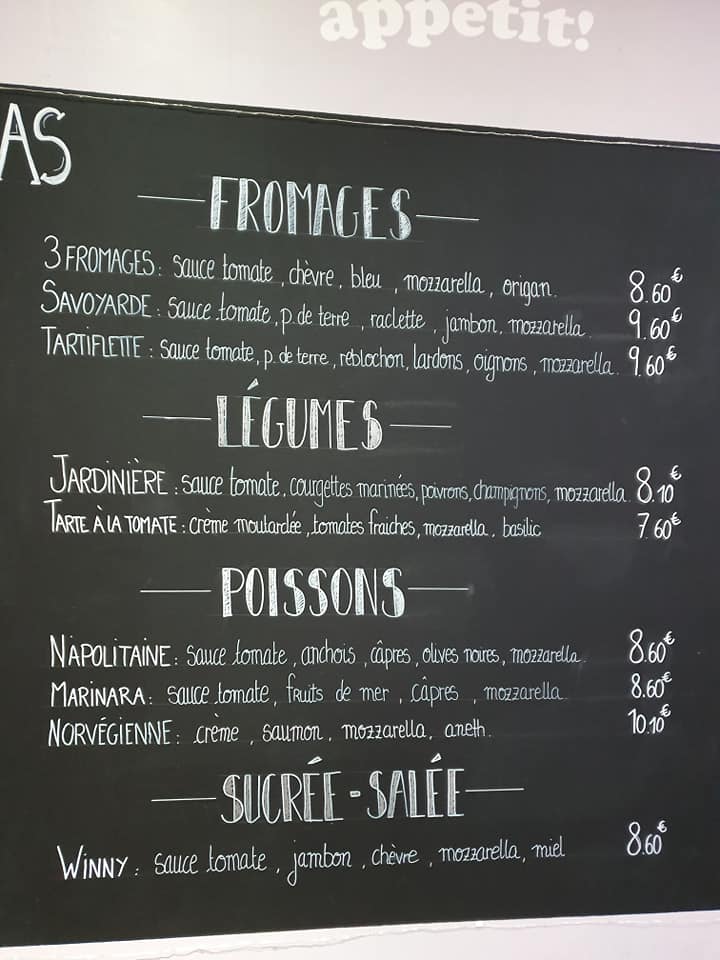 appetit!
AS
FROMAGES
3 FROMAGES: Sauce tomate, chèvre, bleu, mozzarella, origan. 8.60€
SAVOYARDE: Sauce tomate, p. de terre, raclette, jambon, mozzarella. 9.60€
TARTIFLETTE: Sauce tomate, p. de terre, réblochon, lardons, oignons, mozzarella. 9.60€
LÉGUMES
JARDINIÈRE: sauce tomate, courgettes marinées, poivrons, champignons, mozzarella. 8.10€
TARTE À LA TOMATE: crème moutardée, tomates fraiches, mozzarella, basilic 7.60€
POISSONS
NAPOLITAINE: Sauce tomate, anchois, câpres, olives noires, mozzarella. 8.60€
MARINARA: sauce tomate, fruits de mer, câpres, mozzarella 8.60€
NORVÉGIENNE: crème, saumon, mozzarella, aneth. 10.10€
SUCRÉE-SALÉE
WINNY: sauce tomate, jambon, chèvre, mozzarella, miel 8.60€